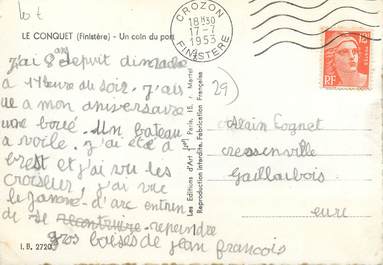 lot
LE CONQUET (Finistère) - Un coin du port
CROZON
18H30
17-7
1953
FINISTÈRE
12F
RF
29
j'ai 8 ans depuit dimanche
a 11 heure du soir. j'ais
ue a mon aniversaire
une boué. Un bateau
a voile. j'ai été a
brest et j'ai vu les
croiseur, j'ai vue
le janne-d'arc entrin
de se recontruire repeindre
gros baises de jean francois
Les Editions d'Art, Paris, 15, r. Martel
Reproduction interdite. Fabrication Française
Alain Lognet
cressenville
Gaillarbois
eure
I. B. 2720